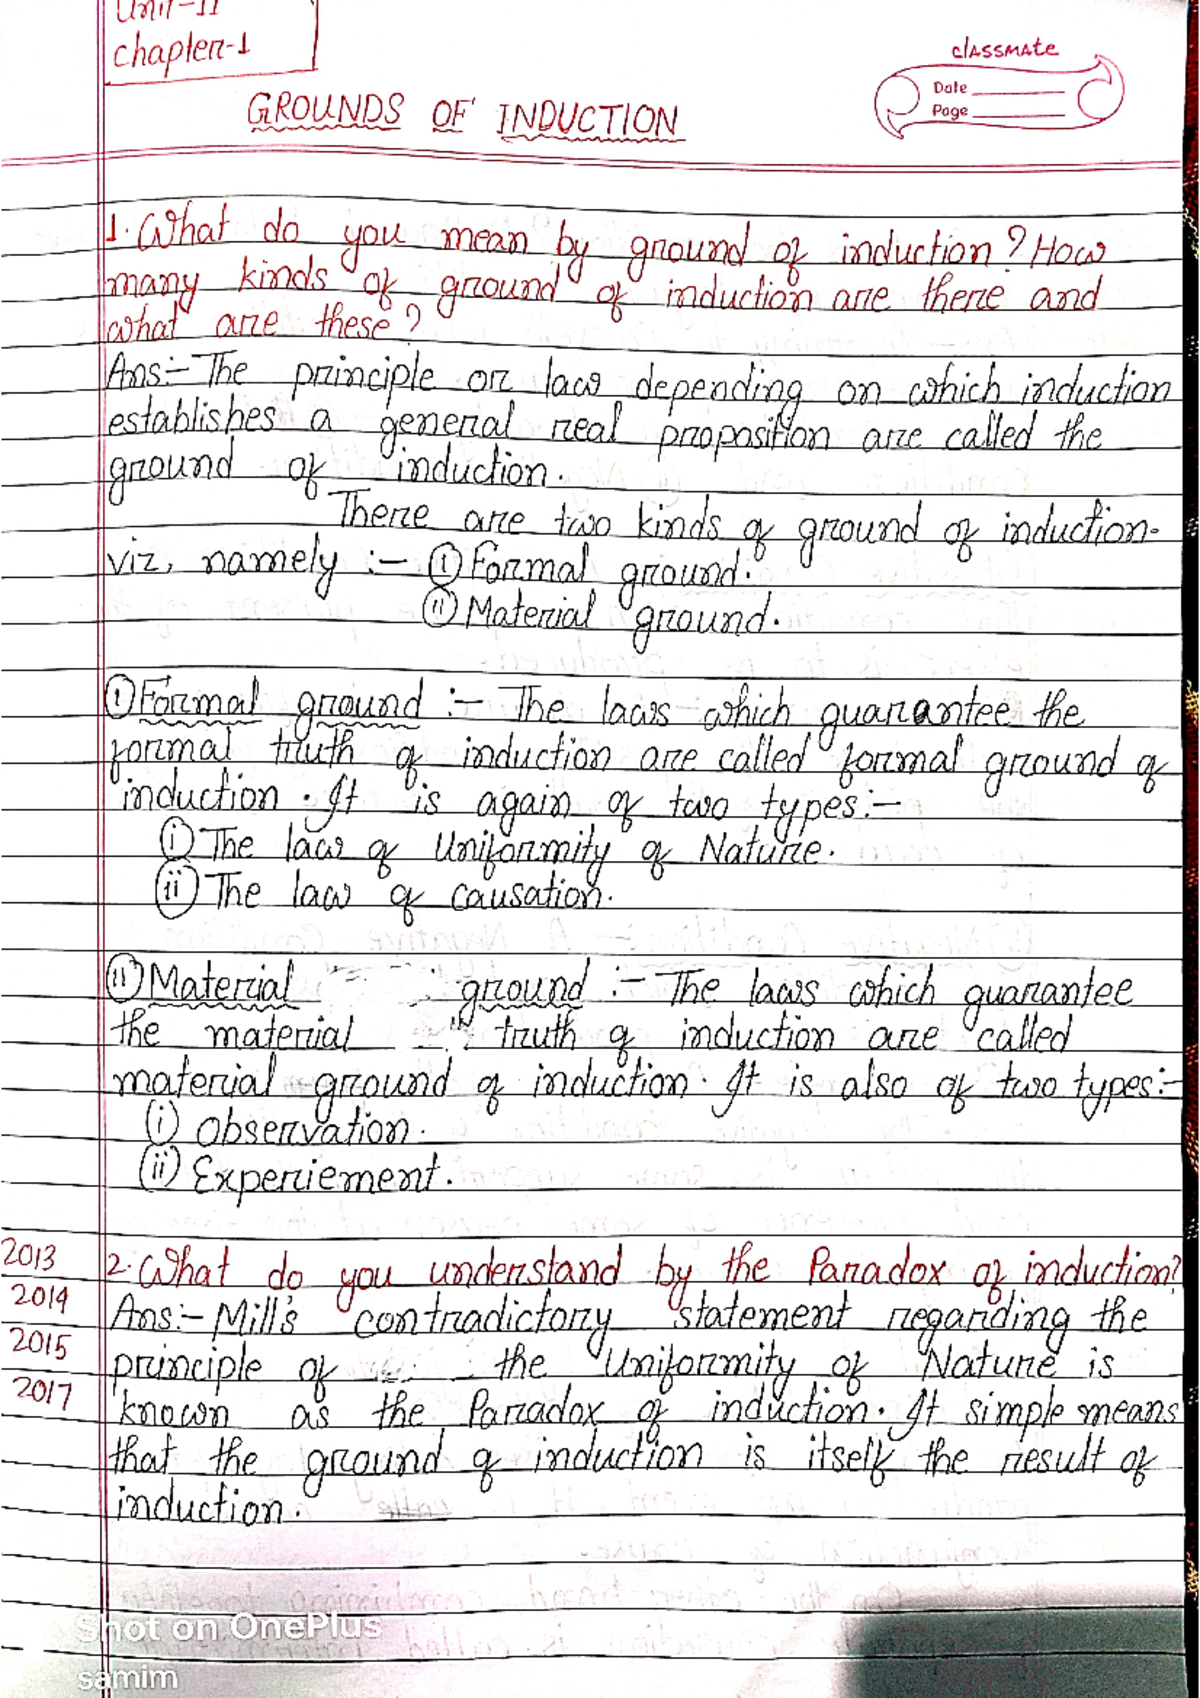 Unit-II
chapter-1
classmate
Date
Page
GROUNDS OF INDUCTION
1. What do you mean by ground of induction? How
many kinds of ground of induction are there and
what are these?
Ans:- The principle or law depending on which induction
establishes a general real proposition are called the
ground of induction.
There are two kinds of ground of induction-
viz, namely :- (i) Formal ground.
(ii) Material ground.
(i) Formal ground :- The laws which guarantee the
formal truth of induction are called formal ground of
induction. It is again of two types:-
(i) The law of Uniformity of Nature.
(ii) The law of causation.
(ii) Material ground :- The laws which guarantee
the material truth of induction are called
material ground of induction. It is also of two types:-
(i) Observation.
(ii) Experiement.
2013
2. What do you understand by the Paradox of induction?
2014
Ans:- Mill's contradictory statement regarding the
2015
principle of the Uniformity of Nature is
2017
known as the Paradox of induction. It simple means
that the ground of induction is itself the result of
induction.
Shot on OnePlus
samim